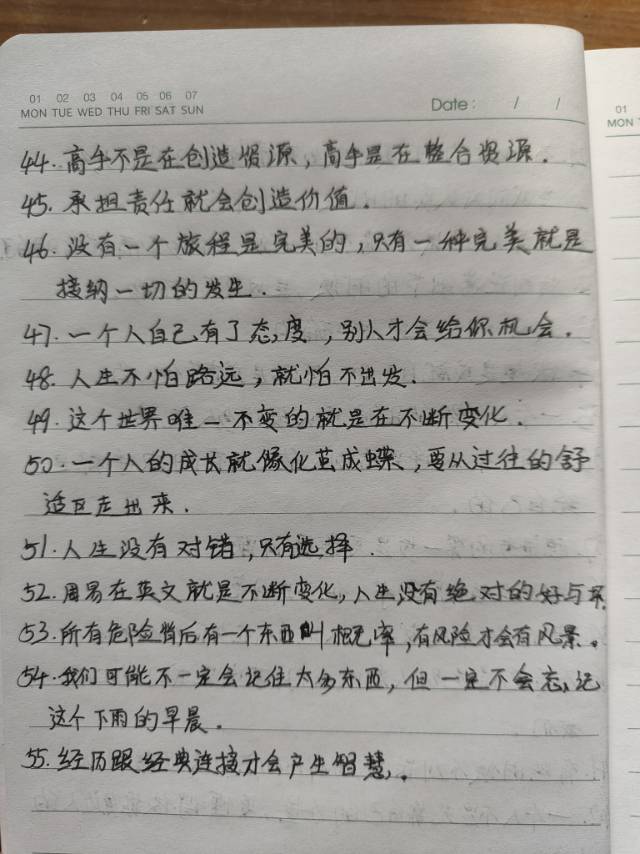 01 02 03 04 05 06 07
MON TUE WED THU FRI SAT SUN
Date: / /
01
MON
44.高手不是在创造资源，高手是在整合资源.
45.承担责任就会创造价值.
46.没有一个旅程是完美的，只有一种完美就是
接纳一切的发生.
47.一个人自己有了态度，别人才会给你机会.
48.人生不怕路远，就怕不出发.
49.这个世界唯一不变的就是在不断变化.
50.一个人的成长就像化茧成蝶，要从过往的舒
适区走出来.
51.人生没有对错，只有选择.
52.周易在英文就是不断变化，人生没有绝对的好与坏
53.所有危险背后有一个东西叫概率，有风险才会有风景。
54.我们可能不一定会记住太多东西，但一定不会忘记
这个下雨的早晨.
55.经历跟经典连接才会产生智慧.